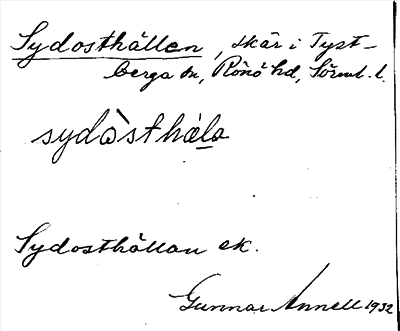 Sydosthällen, skär i Tyst-
berga sn, Rönö hd, Sörml. l.
sydòsthȧla
Sydosthällan ek.
Gunnar Annell 1932